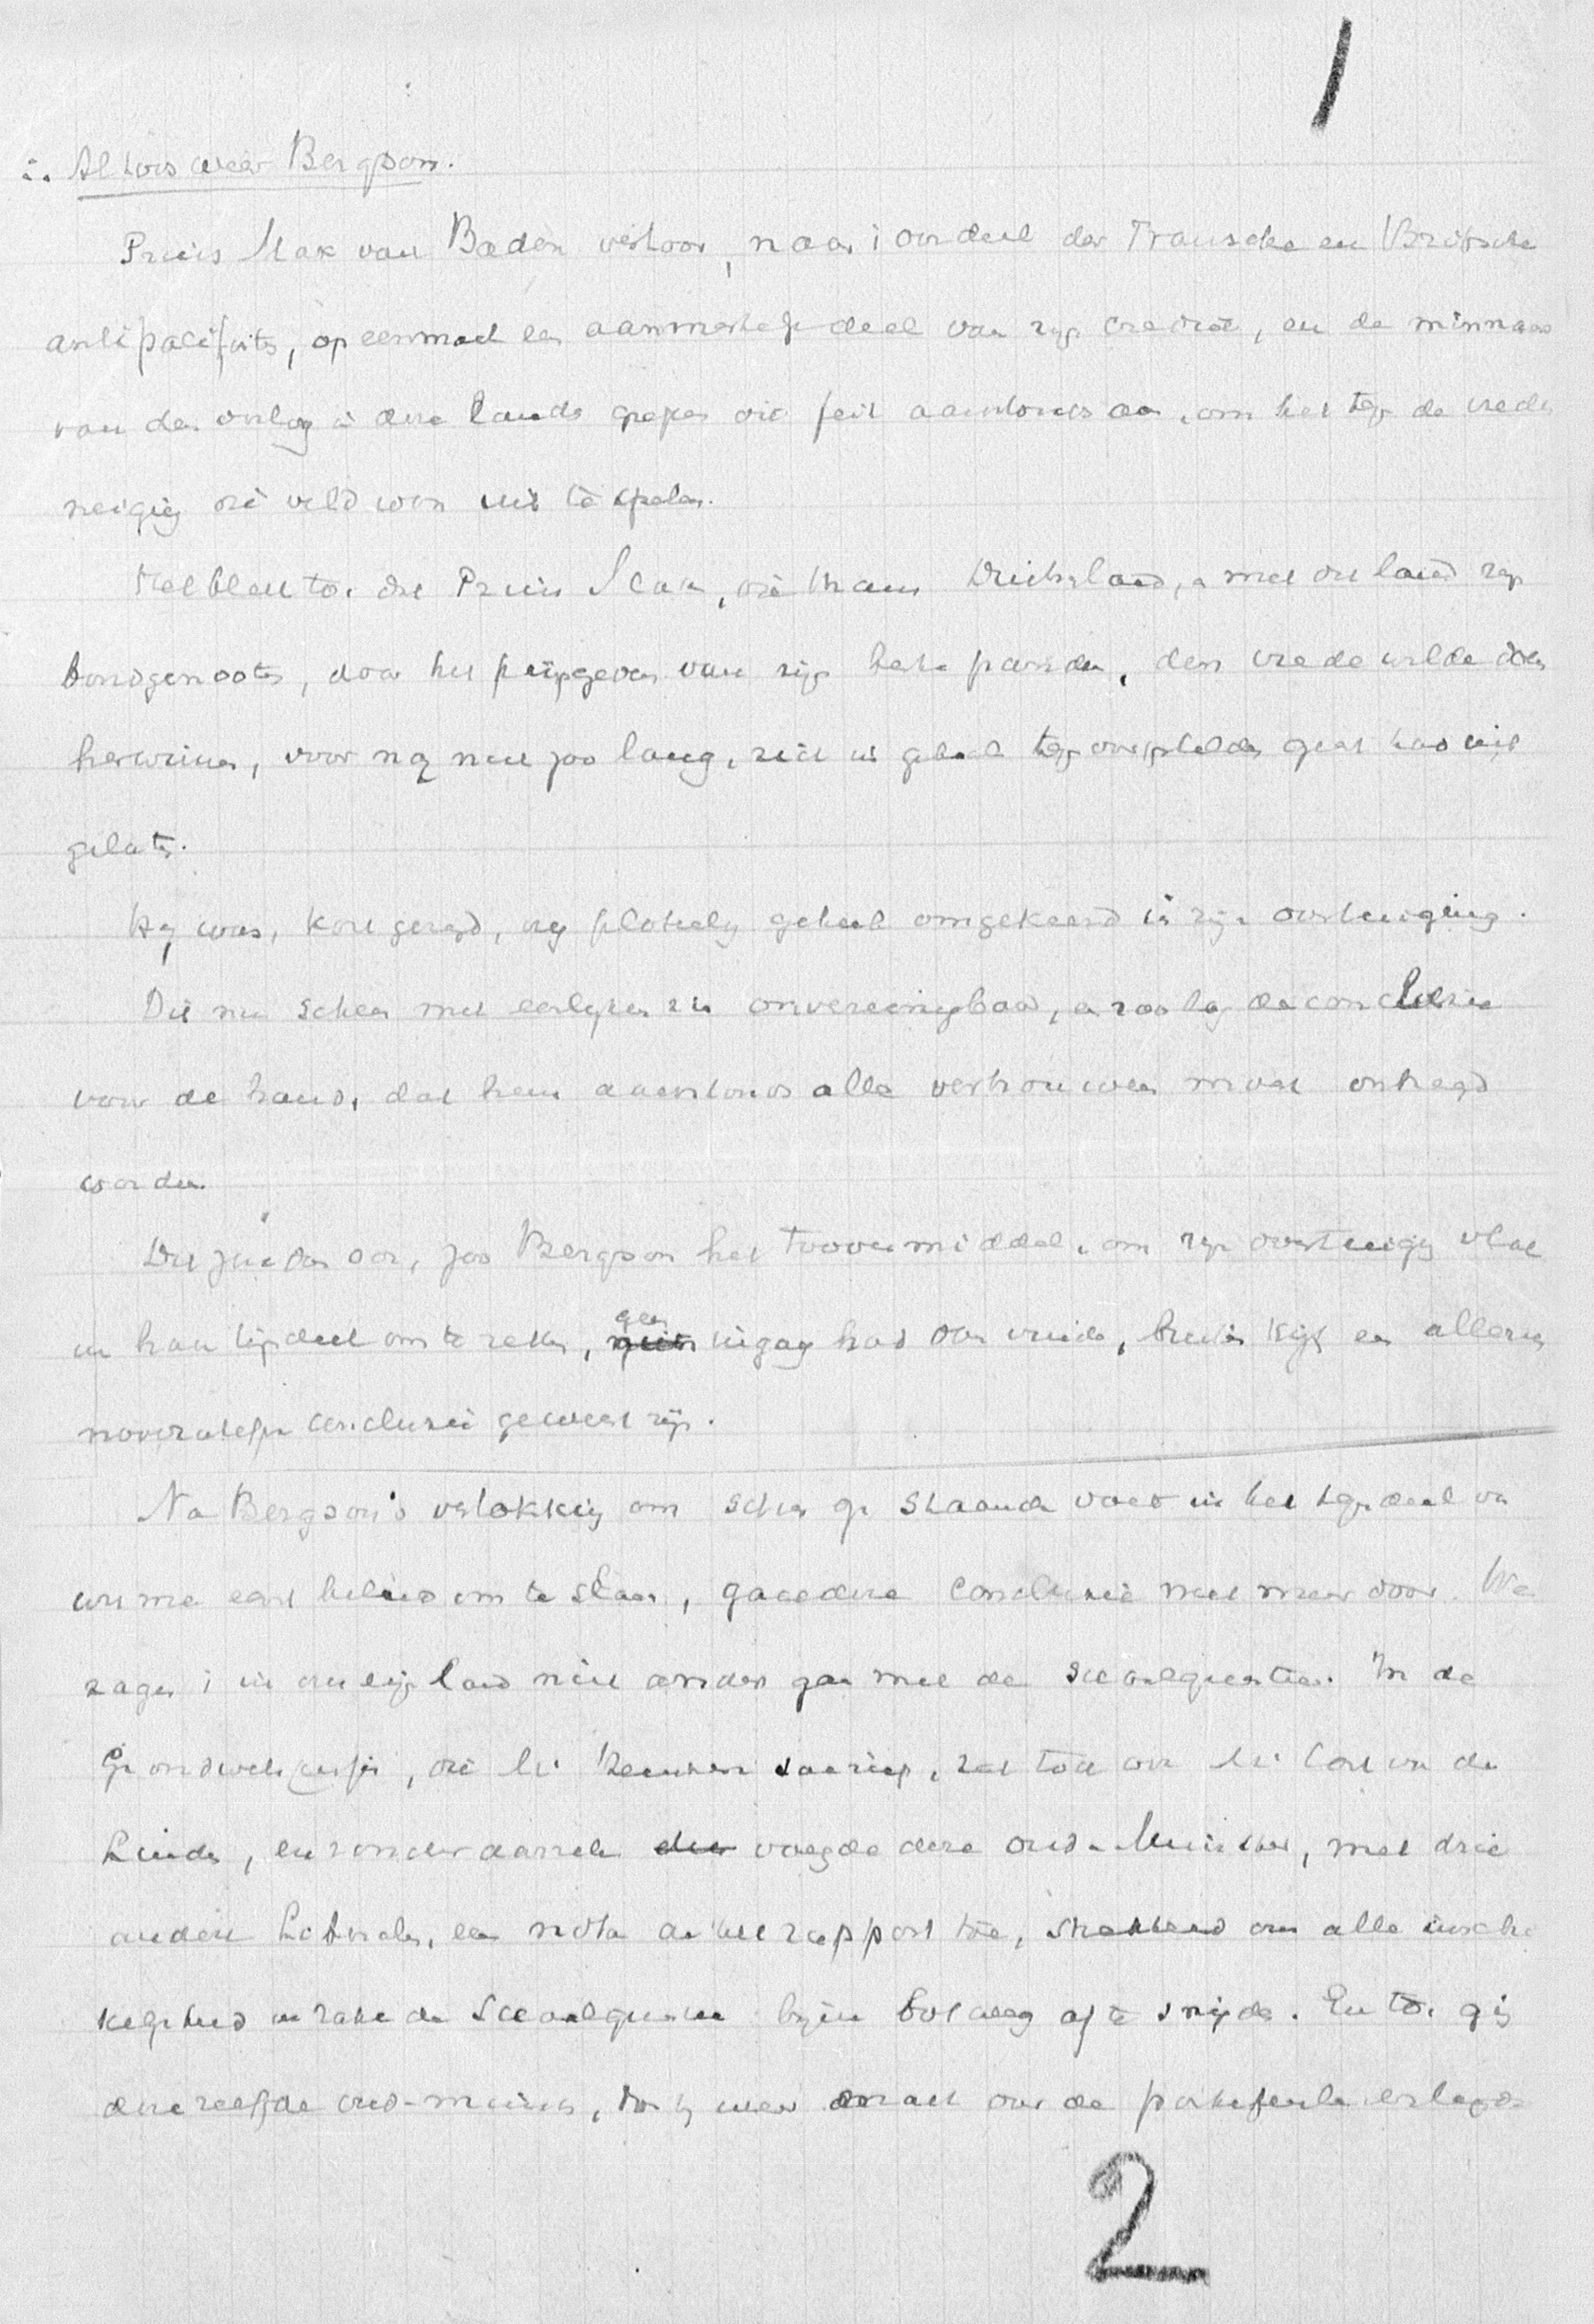 1
∴ Althans weer Bergson.
Prins Max van Baden verloor, naar 't oordeel der Fransche en Britsche
antipacifisten, op eenmaal een aanmerkelijk deel van zijn crediet, en de minnaars
van den oorlog in deze landen grepen dit feit aanstonds aan, om het tegen de vredes
neiging die veld won uit te spelen.
Het bleek toch dat Prins Max, die thans Duitschland, en met dit land zijn
bondgenooten, door het prijsgeven van zijn beste panden, den vrede wilde doen
herwinnen, voor nog niet zoo lang, zich in geheel tegenovergestelden geest had uit
gelaten.
Hij was, kort gezegd, plotseling geheel omgekeerd in zijn overtuiging.
Dit nu scheen met eerlijken zin onvereenigbaar, en zoo lag de conclusie
voor de hand, dat hem aanstonds alle vertrouwen moest ontzegd
worden.
Dit zou dan ook, zoo Bergson het toovermiddel, om zijn overtuiging vlak
in haar tegendeel om te zetten, geen ingang had doen vinden, buiten kijf en allerwege
noodzakelijke conclusie geweest zijn.
Na Bergson's verlokking om schier op staanden voet in het tegendeel van
wie men eerst beleed om te slaan, gaat deze conclusie niet meer door. We
zagen 't in ons eigen land niet anders gaan met de schoolquestie. In de
Grondwetscommissie, die Mr. Heemskerk saamriep, zat toch ook Mr. Cort van der
Linden, en zonder aarzelen voegde deze oud-Minister, met drie
andere Liberalen, een nota aan het rapport toe, strekkend om alle inschik
kelijkheid in zake de Schoolquestie bijna botweg af te snijden. En toch ging
dezelfde oud-minister, toen hij weer de portefeuille
2